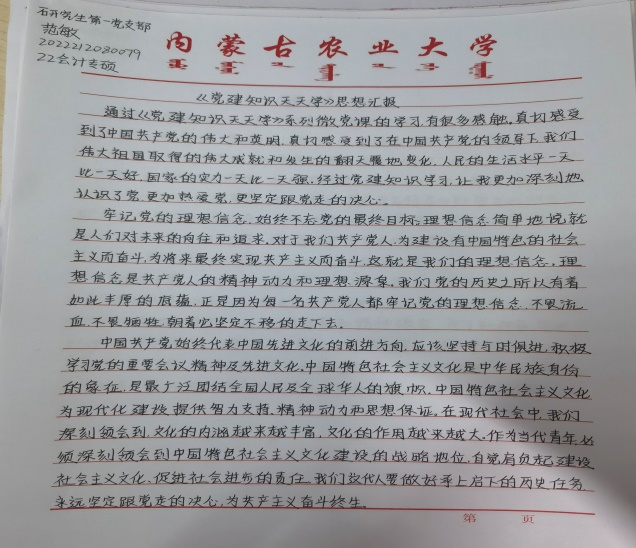 研究生第一党支部
范敏
2022212080079
22会计专硕
内蒙古农业大学
《党建知识天天学》思想汇报
通过《党建知识天天学》系列微党课的学习,有很多感触,真切感受
到了中国共产党的伟大和英明,真切感受到了在中国共产党的领导下,我们
伟大祖国取得的伟大成就和发生的翻天覆地变化,人民的生活水平一天
比一天好,国家的实力一天比一天强,经过党建知识学习,让我更加深刻地
认识了党,更加热爱党,更坚定跟党走的决心。
牢记党的理想信念,始终不忘党的最终目标,理想信念简单地说,就
是人们对未来的向往和追求,对于我们共产党人,为建设有中国特色的社会
主义而奋斗,为将来最终实现共产主义而奋斗,这就是我们的理想信念,理
想信念是共产党人的精神动力和理想源泉,我们党的历史之所以有着
如此丰厚的底蕴,正是因为每一名共产党人都牢记党的理想信念,不畏流
血,不畏牺牲,朝着它坚定不移的走下去。
中国共产党始终代表中国先进文化的前进方向,应该坚持与时俱进,积极
学习党的重要会议精神及先进文化,中国特色社会主义文化是中华民族身份
的象征,是最广泛团结全国人民及全球华人的旗帜,中国特色社会主义文化
为现代化建设提供智力支持,精神动力和思想保证。在现代社会中,我们
深刻领会到,文化的内涵越来越丰富,文化的作用越来越大,作为当代青年,必
须深刻领会到中国特色社会主义文化建设的战略地位,自觉肩负起建设
社会主义文化,促进社会进步的责任,我们这代人要做好承上启下的历史任务,
永远坚定跟党走的决心,为共产主义奋斗终生。
第 页